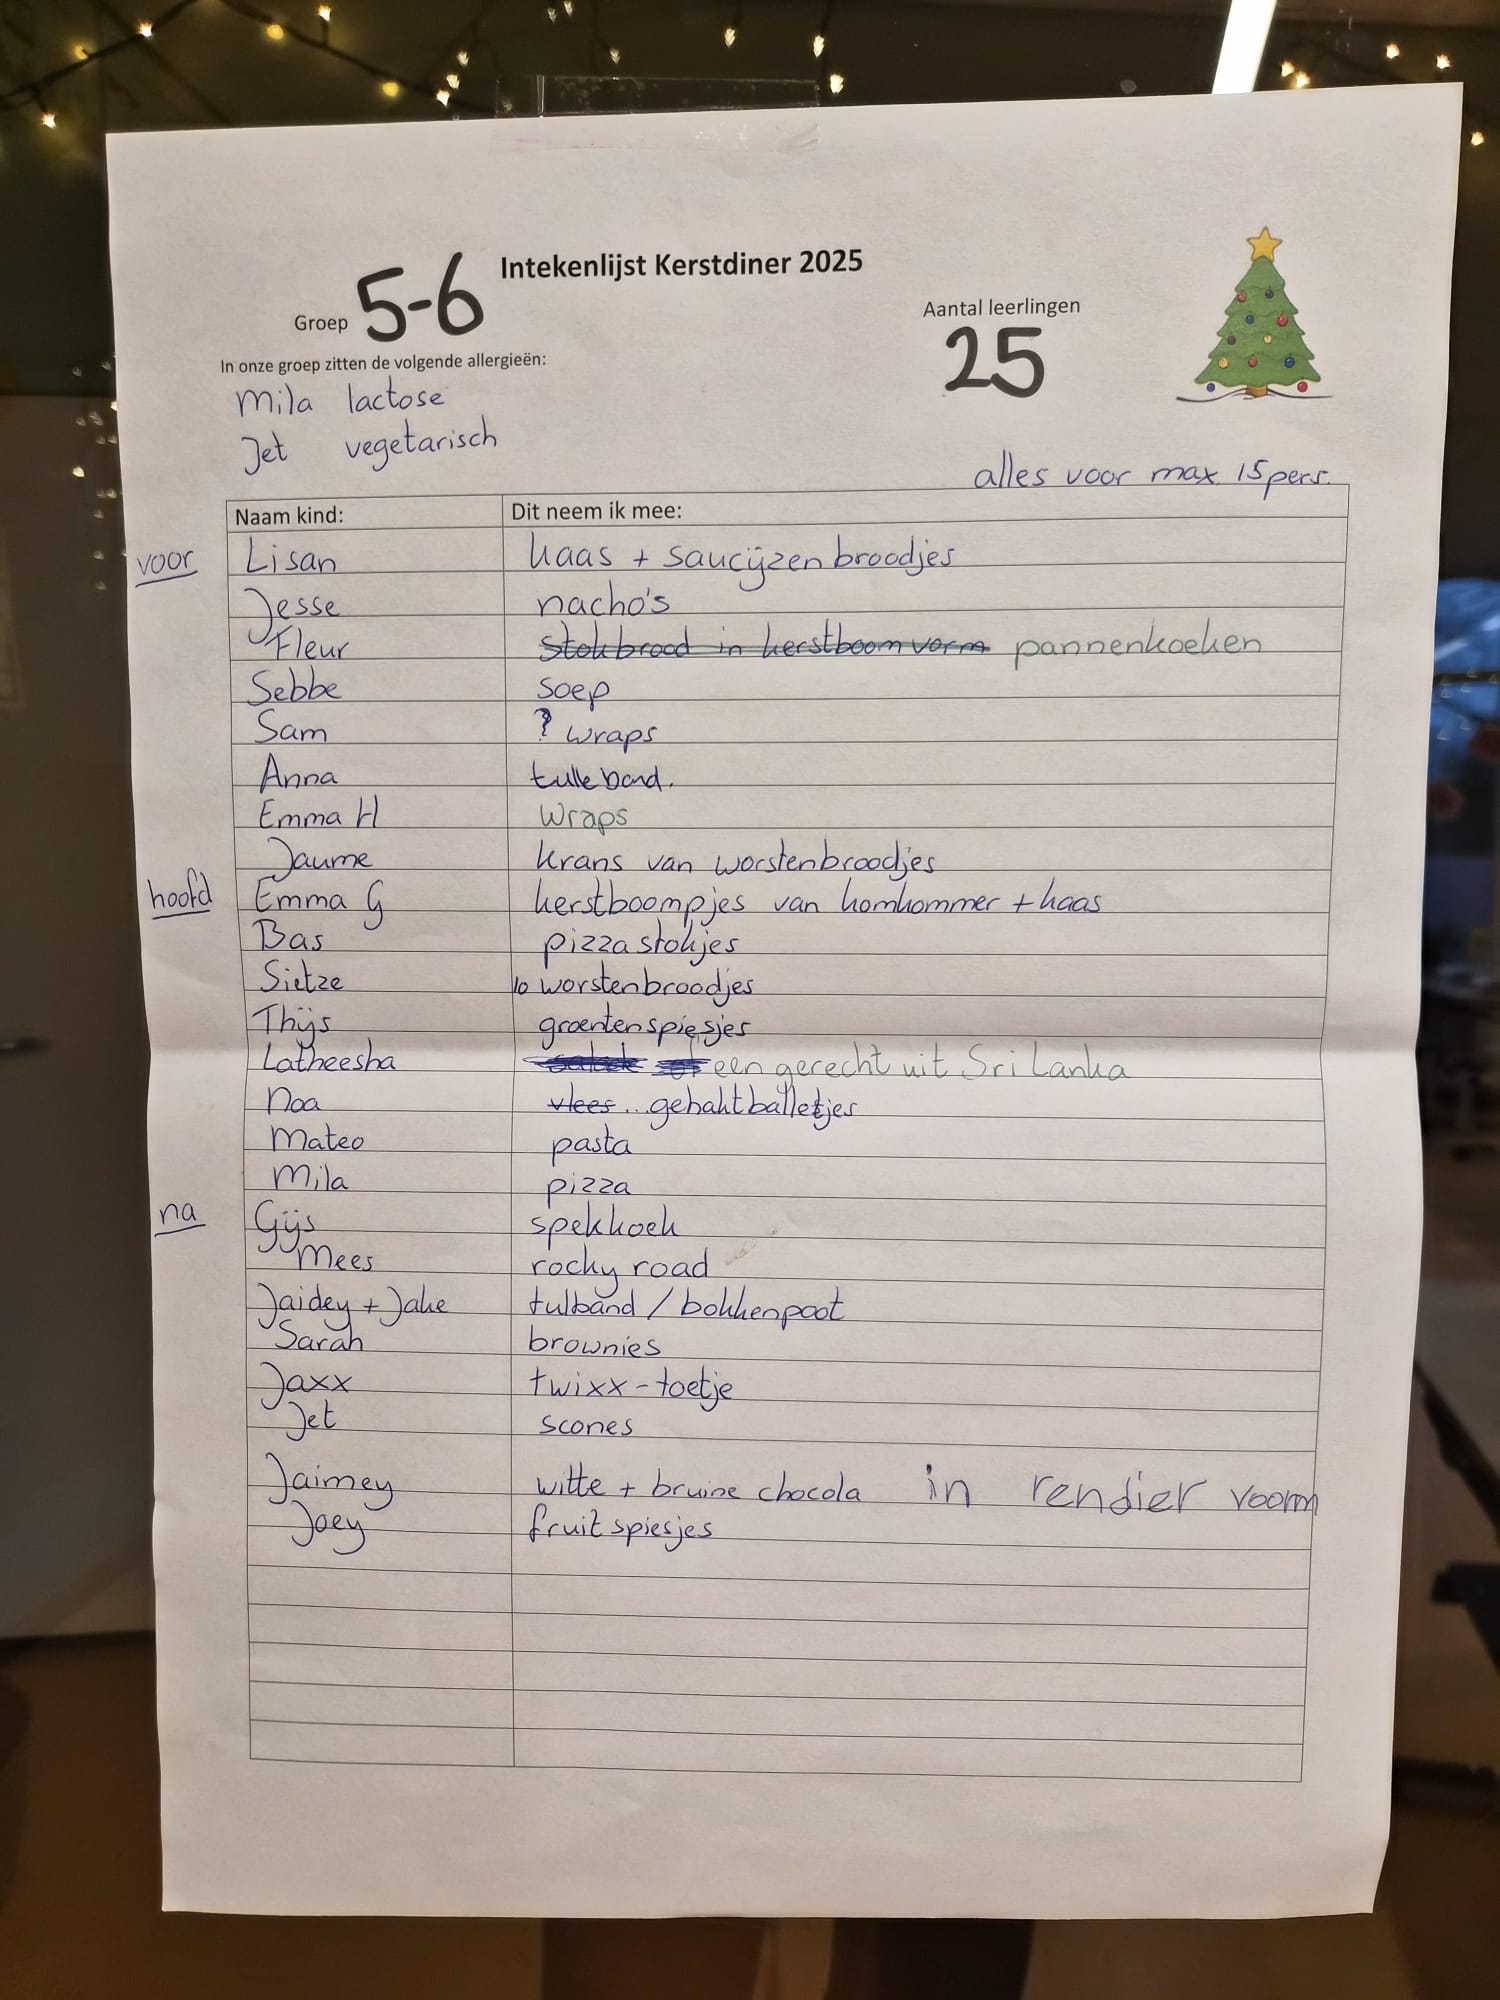 Intekenlijst Kerstdiner 2025
Groep 5-6
Aantal leerlingen
25
In onze groep zitten de volgende allergieën:
Mila lactose
Jet vegetarisch
alles voor max. 15 pers.
Naam kind: Dit neem ik mee:
voor Lisan kaas + saucijzenbroodjes
Jesse nacho's
Fleur stokbrood in kerstboomvorm pannenkoeken
Sebbe soep
Sam ? wraps
Anna tulleband.
Emma H wraps
Jaume krans van worstenbroodjes
hoofd Emma G kerstboompjes van komkommer + kaas
Bas pizzastokjes
Sietze 10 worstenbroodjes
Thijs groentenspiesjes
Latheesha salade of een gerecht uit Sri Lanka
Noa vlees .. gehaktballetjes
Mateo pasta
Mila pizza
na Gijs spekkoek
Mees rocky road
Jaidey + Jake tulband / bokkenpoot
Sarah brownies
Jaxx twixx-toetje
Jet scones
Jaimey witte + bruine chocola in rendier voorm
Joey fruitspiesjes